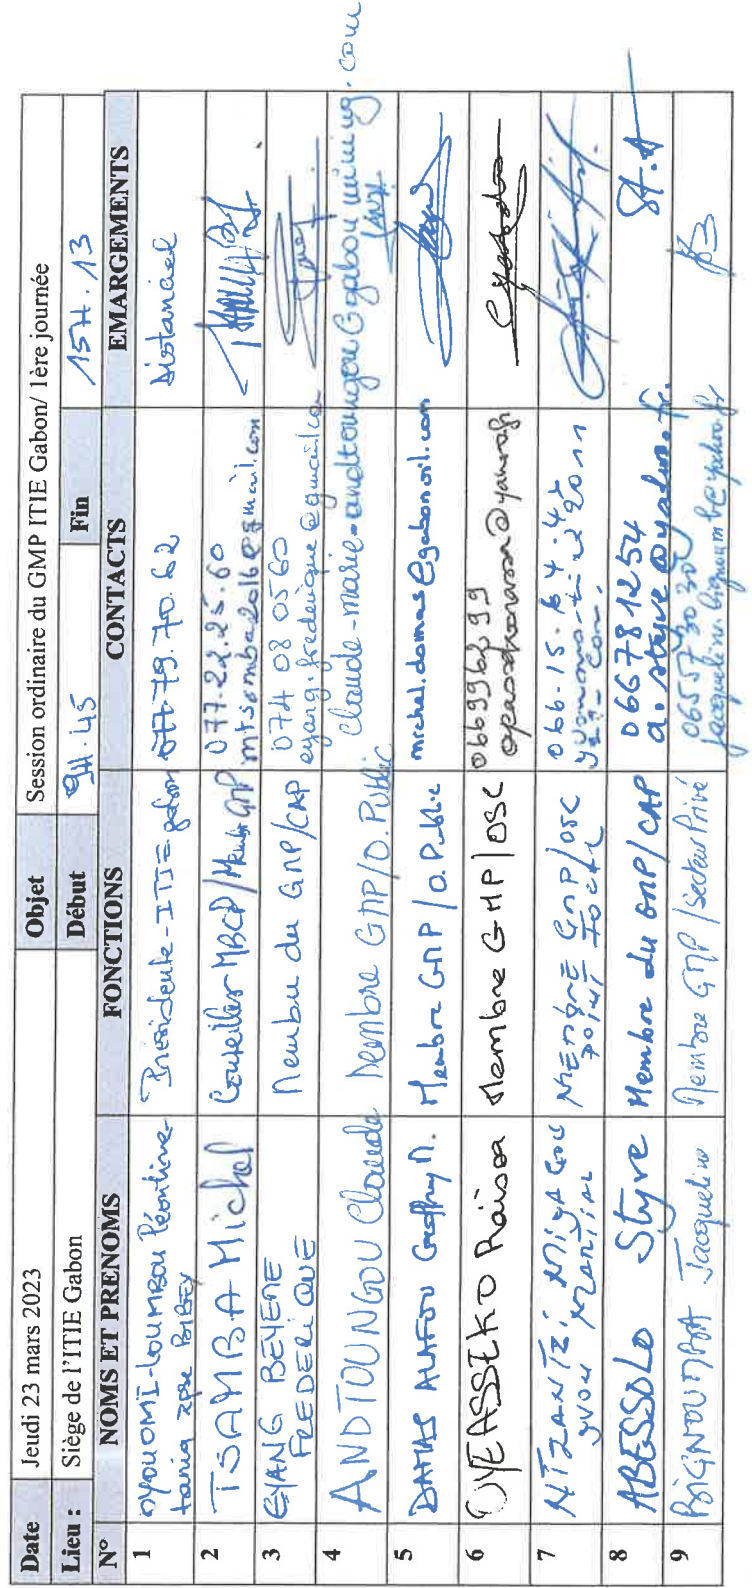 Date Jeudi 23 mars 2023 Objet Session ordinaire du GMP ITIE Gabon/ 1ère journée
Lieu : Siège de l'ITIE Gabon Début 9H.45 Fin 15H.13
N° NOMS ET PRENOMS FONCTIONS CONTACTS EMARGEMENTS
1 OYOUOMI-LOUMBOU Léontine Présidente-ITIE gabon 077.79.70.62 distanciel
tania
2 TSAMBA Michel Conseiller MBCP/Membre GMP 077.22.25.60
mtsamba2016@gmail.com
3 EYANG BEYEME Membre du GMP/CAP 074 08 05 60
FREDERIQUE eyang.frederique@gmail.com
4 ANDTOUNGOU Claude Membre GMP/O.Public claude-marie-andtoungou@gabonmining.com
5 DAMAS ALAFOU Geoffroy M. Membre GMP/O.Public michel.damas@gabonoil.com
6 OYEASSEKO Raïssa Membre GMP/OSC 066996299
7 NTZANTZI MIYAGOU MEMBRE GMP/OSC 066-15.64.45
YVON MARTIAL
8 ABESSOLO Styve Membre du GMP/CAP 06678 1254 St.A
a.styve@yahoo.fr.
9 BIGNOUMBA Jacqueline Membre GMP/Secteur Privé 065573030
jacqueline.bignoumba@yahoo.fr